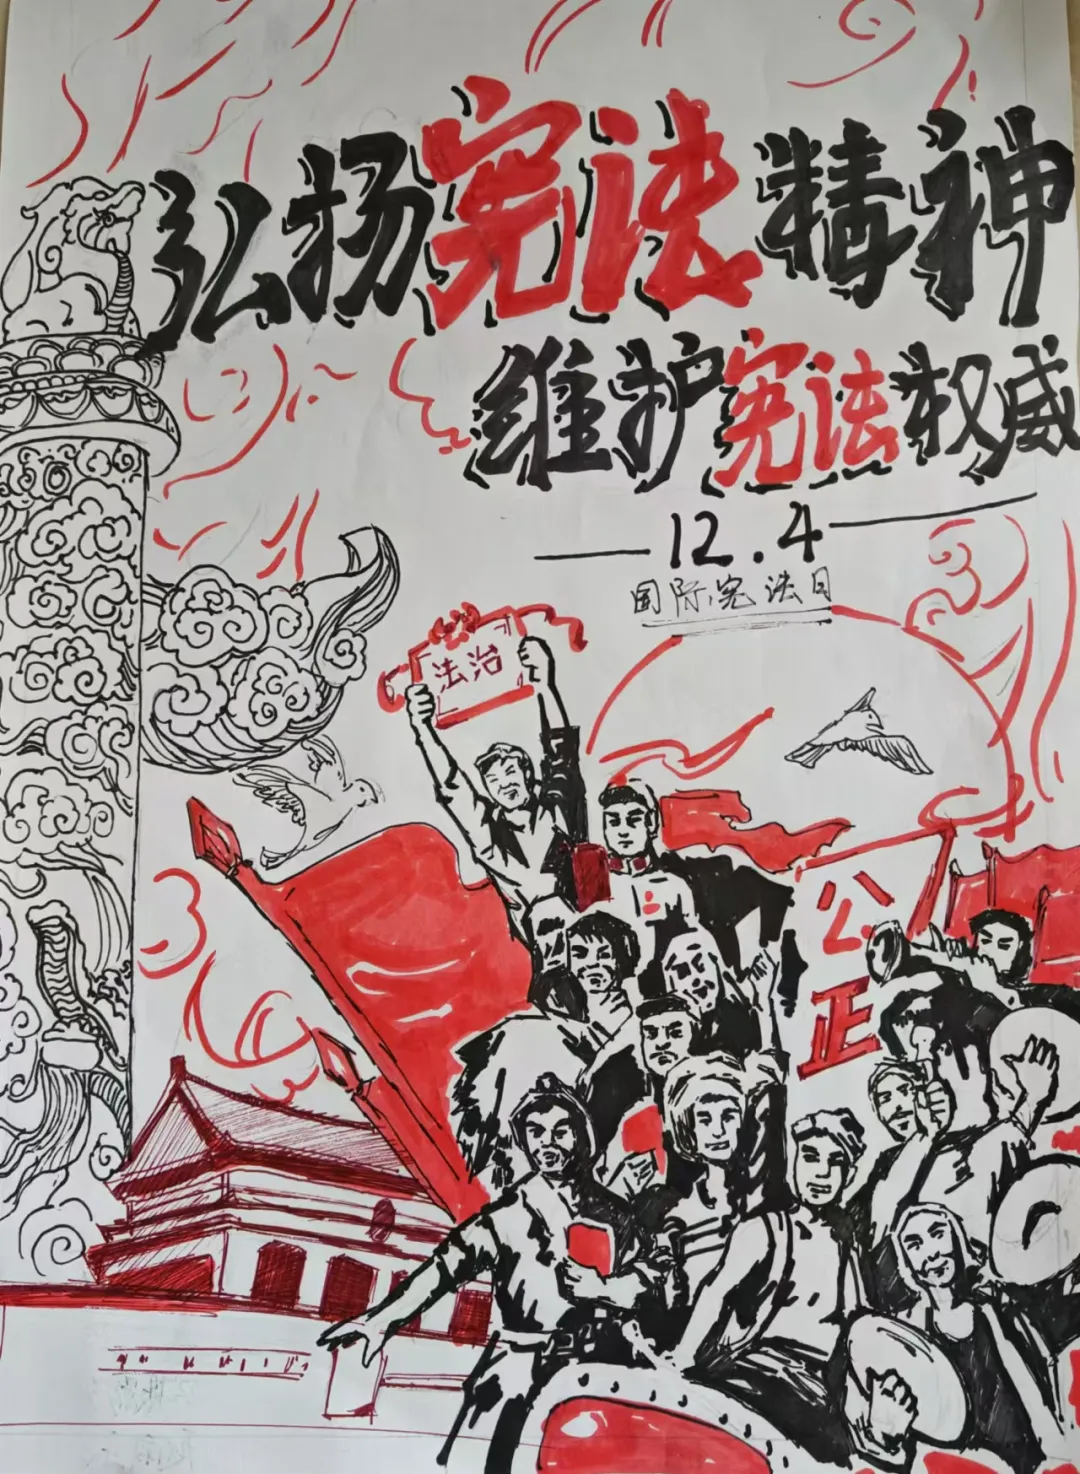 弘扬宪法精神
维护宪法权威
12.4
国际宪法日
法治
公
正